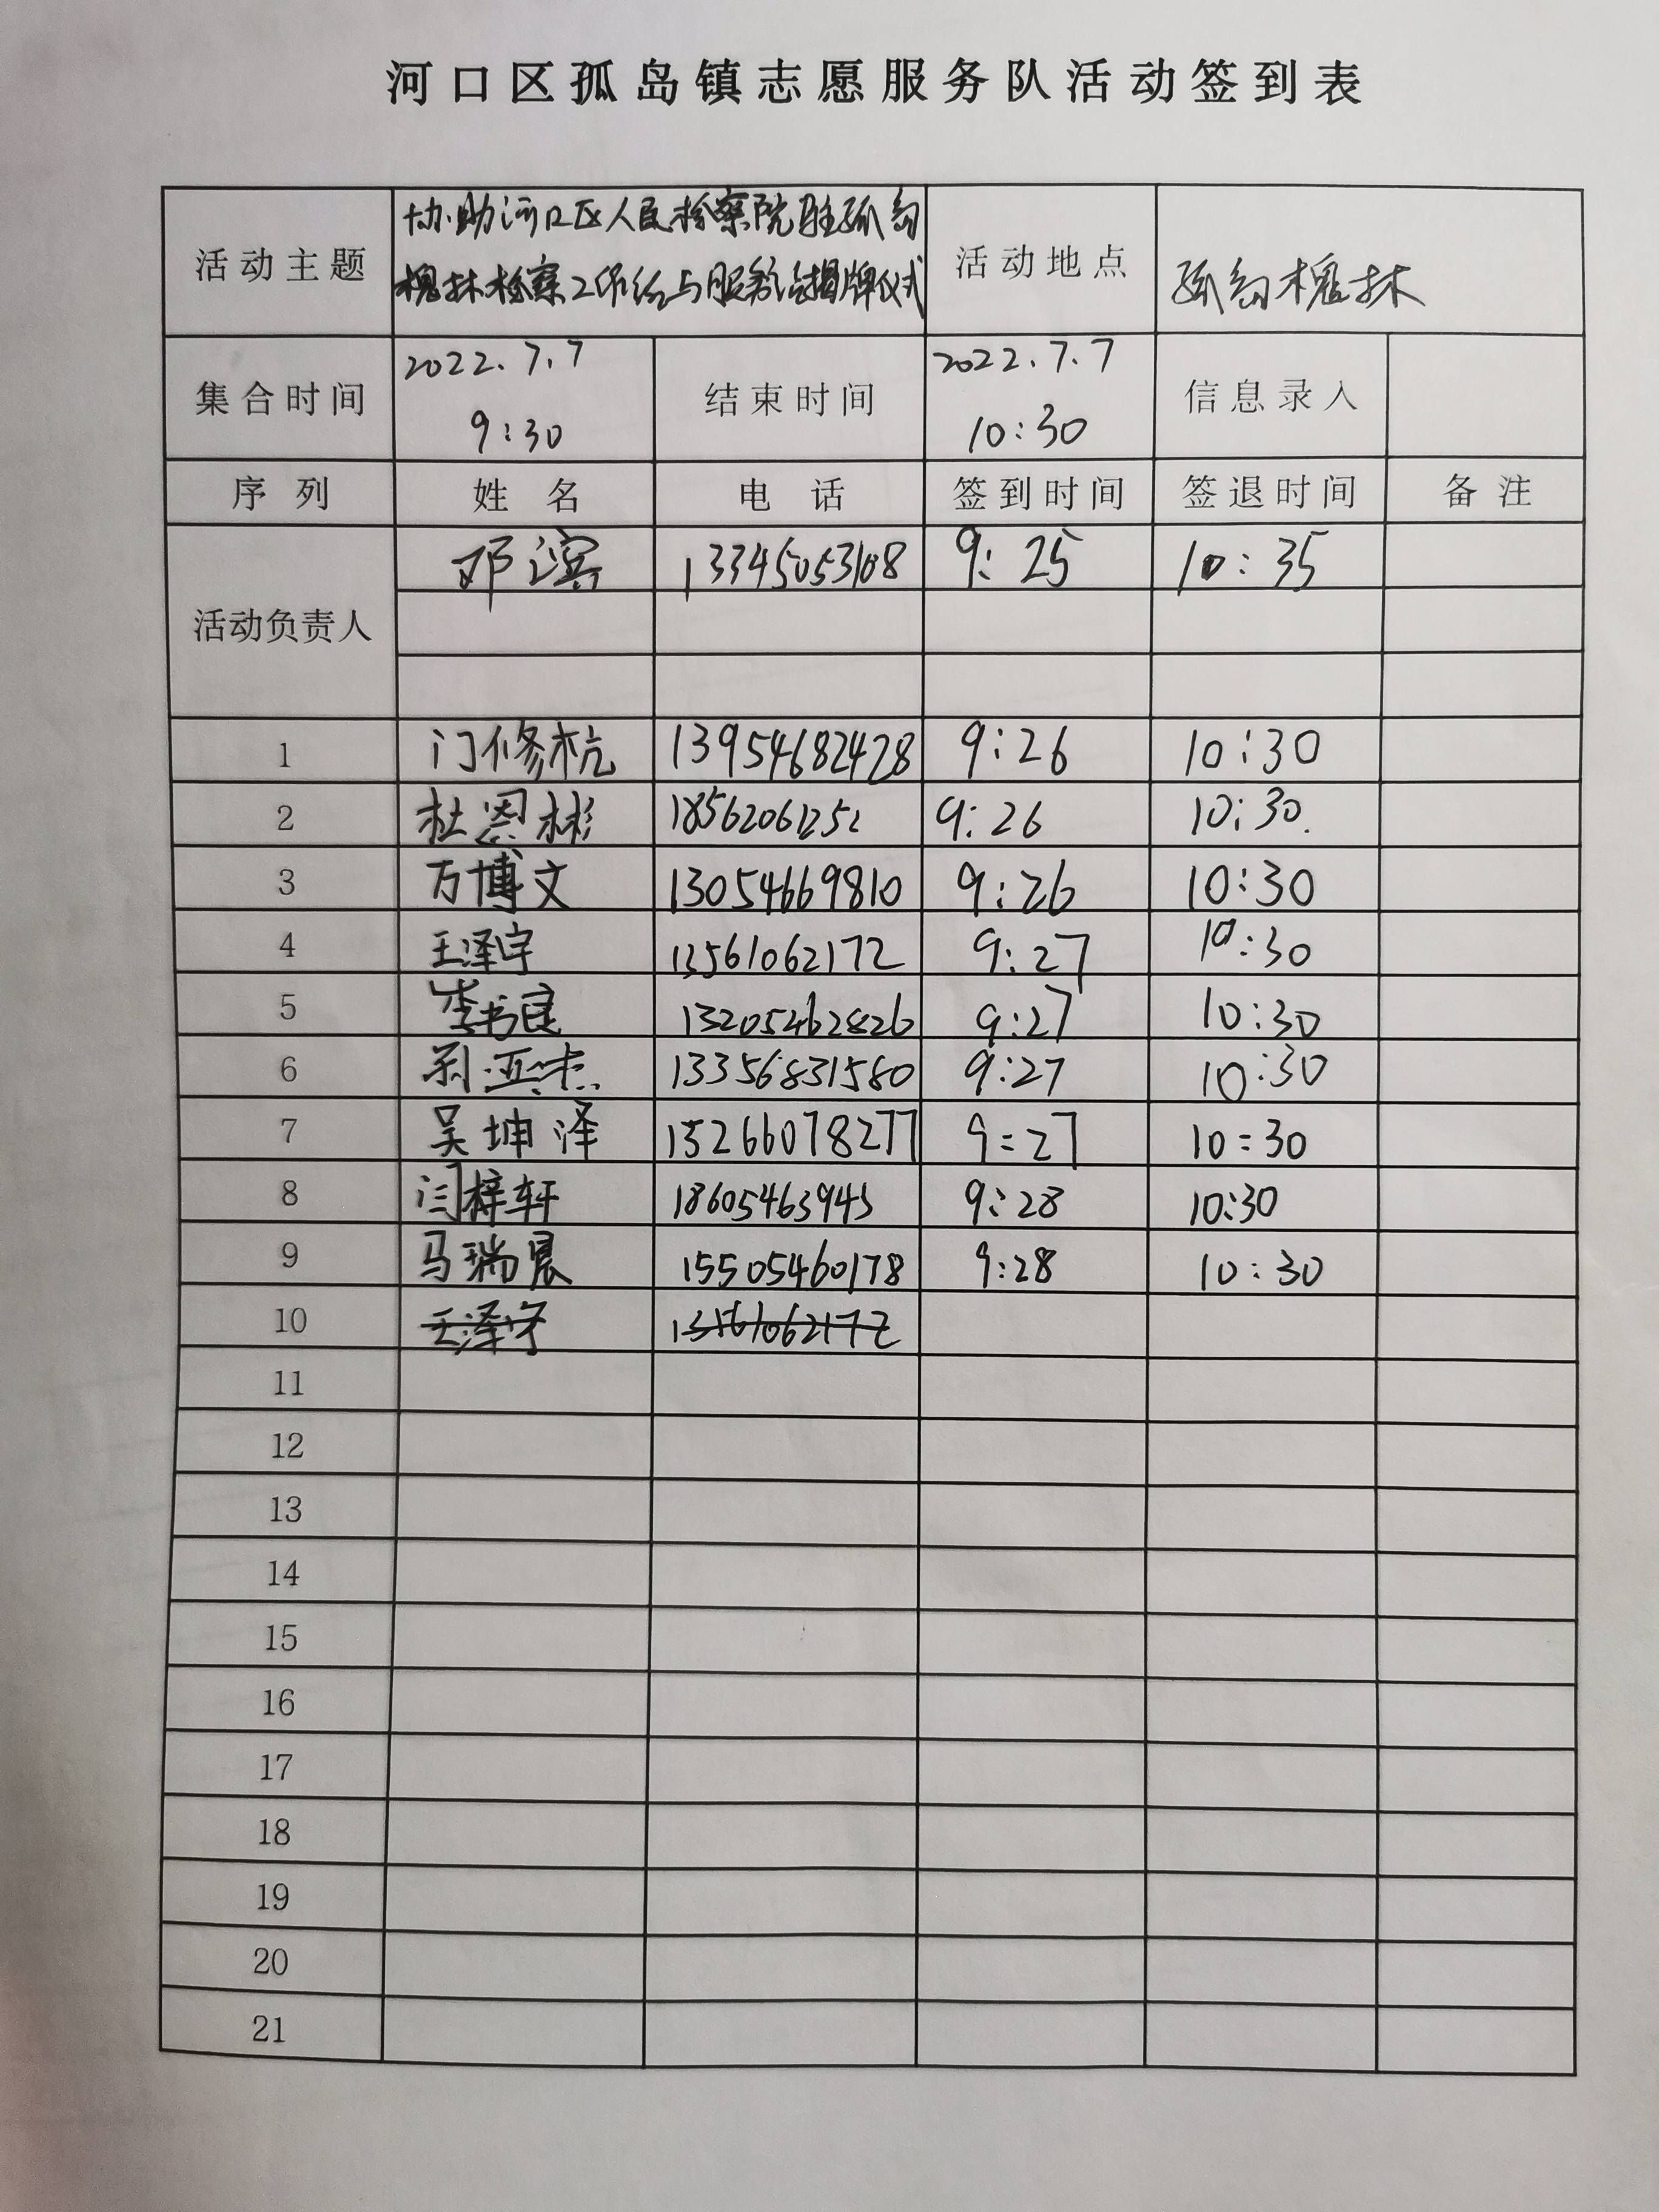 河口区孤岛镇志愿服务队活动签到表
活动主题 协助河口区人民检察院驻孤岛 活动地点 孤岛槐林
槐林检察工作站与服务站揭牌仪式
集合时间 2022.7.7 9:30 结束时间 2022.7.7 10:30 信息录入
序列 姓名 电话 签到时间 签退时间 备注
活动负责人 邓滨 13345053108 9:25 10:35
1 门修杭 13954682428 9:26 10:30
2 杜恩彬 18562061252 9:26 10:30.
3 万博文 13054669810 9:26 10:30
4 王泽宇 13561062172 9:27 10:30
5 李书良 13205462826 9:27 10:30
6 亚杰 13356831580 9:27 10:30
7 吴坤泽 15266078277 9=27 10=30
8 闫梓轩 18605463945 9:28 10:30
9 马瑞晨 15505460178 9:28 10:30
10 王泽宇 13561062172
11
12
13
14
15
16
17
18
19
20
21